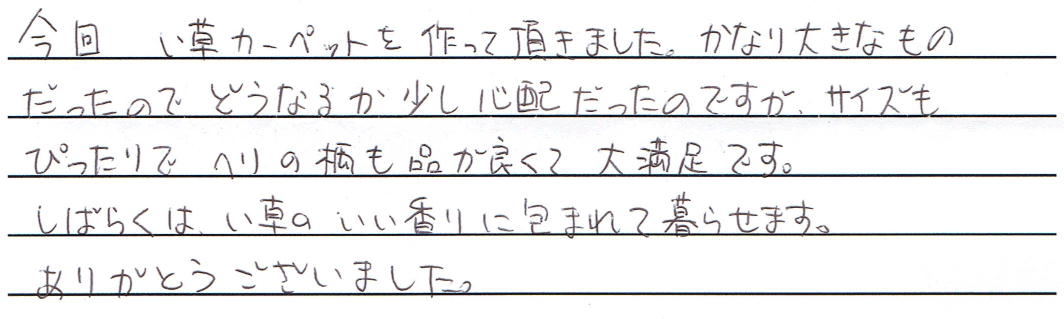 今回　い草カーペットを作って頂きました。かなり大きなもの
だったのでどうなるか少し心配だったのですが、サイズも
ぴったりでヘリの柄も品が良くて大満足です。
しばらくは、い草のいい香りに包まれて暮らせます。
ありがとうございました。